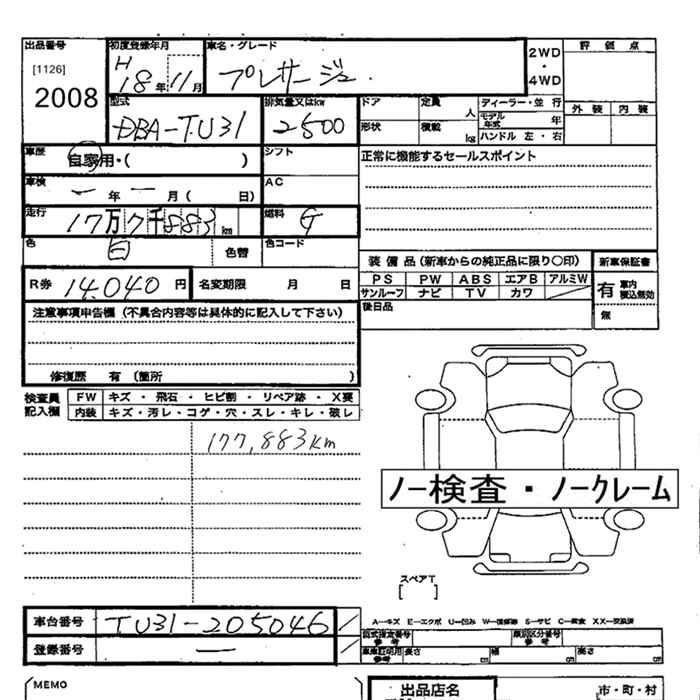 出品番号 初度登録年月 車名・グレード 2WD ・ 4WD 評価点
[1126] H 18年 11月 プレサージュ.
2008 型式 DBA-TU31 排気量又はkw 2500 ドア 定員 人 ディーラー・並行 外装 内装
形状 積載 kg モデル年式 年 ハンドル 左・右
車歴 自家用・( ) シフト 正常に機能するセールスポイント
車検 ー 年 ー 月( 日) AC
走行 17万7千883km 燃料 G
色 白 色替 色コード 装備品(新車からの純正品に限り○印) 新車保証書
R券 14.040円 名変期限 月 日 PS PW ABS エアB アルミW 有 車内積込無効
サンルーフ ナビ TV カワ 無
注意事項申告欄(不具合内容等は具体的に記入して下さい) 後日品
修復歴 有 (箇所 )
検査員記入欄 FW キズ・飛石・ヒビ割・リペア跡・X要
内装 キズ・汚レ・コゲ・穴・スレ・キレ・破レ
177,883km
ノー検査・ノークレーム
スペアT
[ ]
車台番号 TU31-205046
A-キズ E-エクボ U-凹み W-補修跡 S-サビ C-腐食 XX-交換済
登録番号 ー 型式指定番号 参考 類別区分番号 参考
車庫証明用参考 長さ cm 幅 cm 高さ cm
MEMO 出品店名 市・町・村